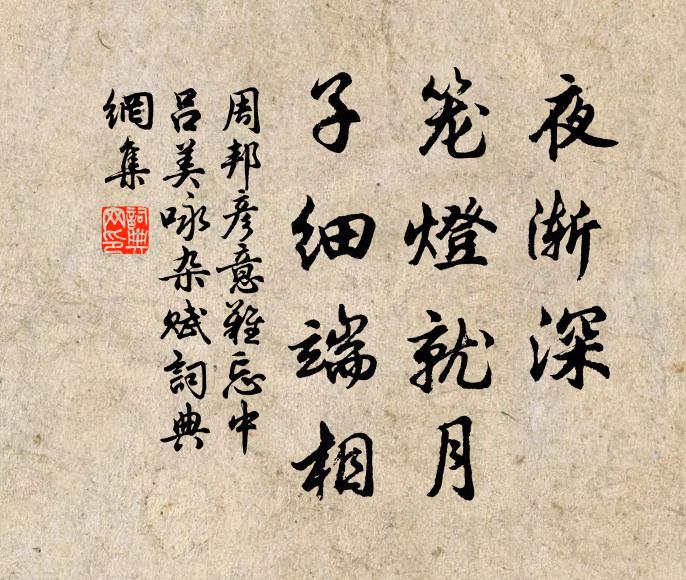 夜渐深
笼燈就月
子细端相
周邦彦意難忘中
吕美咏杂赋詞典
網集
詞典
网印